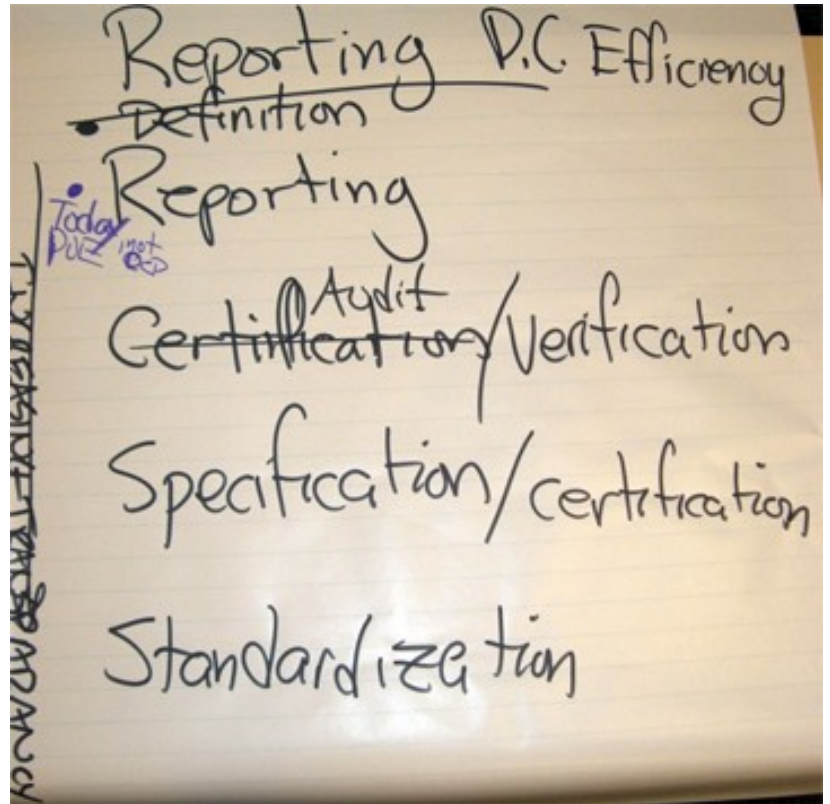 Reporting D.C. Efficiency
• Definition
• Reporting
Today
PUE not
Audit
Certification/Verification
Specification/certification
Standardization